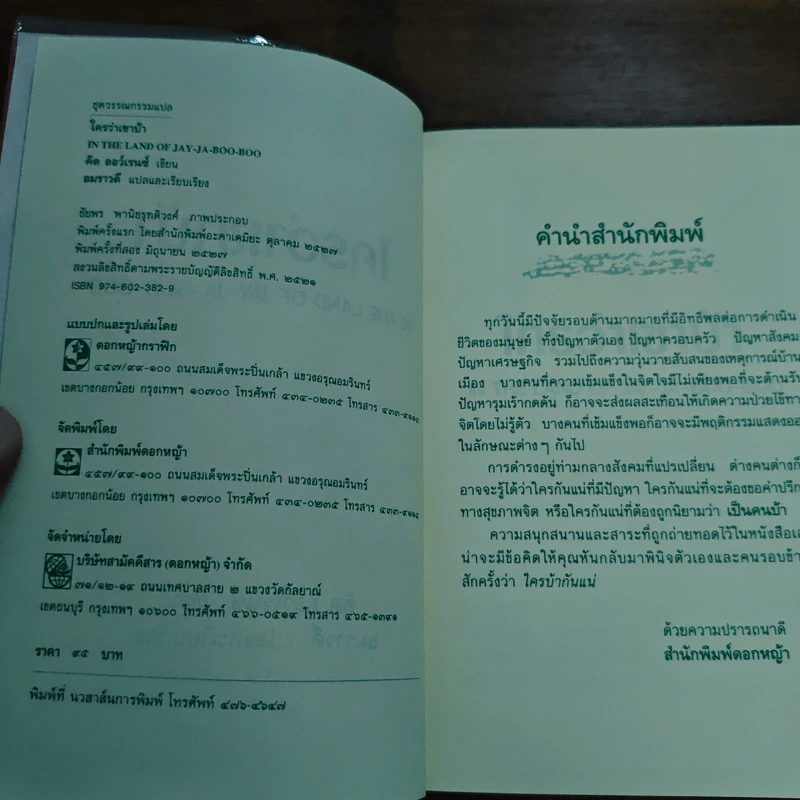 ชุดวรรณกรรมแปล
ใครว่าเขาบ้า
IN THE LAND OF JAY-JA-BOO-BOO
คิต ลอว์เรนซ์ เขียน
อมราวดี แปลและเรียบเรียง
ชัยพร พานิชรุทติวงศ์ ภาพประกอบ
พิมพ์ครั้งแรก โดยสำนักพิมพ์อะคาเดมียะ ตุลาคม ๒๕๒๗
พิมพ์ครั้งที่สอง มิถุนายน ๒๕๓๗
สงวนลิขสิทธิ์ตามพระราชบัญญัติลิขสิทธิ์ พ.ศ. ๒๕๒๑
ISBN 974-602-382-9
แบบปกและรูปเล่มโดย
ดอกหญ้ากราฟิก
๔๕๗/๙๙-๑๐๐ ถนนสมเด็จพระปิ่นเกล้า แขวงอรุณอมรินทร์
เขตบางกอกน้อย กรุงเทพฯ ๑๐๗๐๐ โทรศัพท์ ๔๓๔-๐๒๓๕ โทรสาร
จัดพิมพ์โดย
สำนักพิมพ์ดอกหญ้า
๔๕๗/๙๙-๑๐๐ ถนนสมเด็จพระปิ่นเกล้า แขวงอรุณอมรินทร์
เขตบางกอกน้อย กรุงเทพฯ ๑๐๗๐๐ โทรศัพท์ ๔๓๔-๐๒๓๕ โทรสาร
จัดจำหน่ายโดย
บริษัทสามัคคีสาร (ดอกหญ้า) จำกัด
๗๑/๑๒-๑๙ ถนนเทศบาลสาย ๒ แขวงวัดกัลยาณ์
เขตธนบุรี กรุงเทพฯ ๑๐๖๐๐ โทรศัพท์ ๔๖๖-๐๕๑๙ โทรสาร ๔๖๕-๑๓๙๑
ราคา ๙๕ บาท
พิมพ์ที่ นวสาส์นการพิมพ์ โทรศัพท์ ๔๗๖-๔๖๔๗
คำนำสำนักพิมพ์
ทุกวันนี้มีปัจจัยรอบด้านมากมายที่มีอิทธิพลต่อการดำเนิน
ชีวิตของมนุษย์ ทั้งปัญหาตัวเอง ปัญหาครอบครัว ปัญหาสังคม
ปัญหาเศรษฐกิจ รวมไปถึงความวุ่นวายสับสนของเหตุการณ์บ้าน
เมือง บางคนที่ความเข้มแข็งในจิตใจมีไม่เพียงพอที่จะด้านรับ
ปัญหารุมเร้ากดดัน ก็อาจจะส่งผลสะเทือนให้เกิดความป่วยไข้ทาง
จิตโดยไม่รู้ตัว บางคนที่เข้มแข็งพอก็อาจจะมีพฤติกรรมแสดงออ
ในลักษณะต่าง ๆ กันไป
การดำรงอยู่ท่ามกลางสังคมที่แปรเปลี่ยน ต่างคนต่างก็
อาจจะรู้ได้ว่าใครกันแน่ที่มีปัญหา ใครกันแน่ที่จะต้องขอคำปรึก
ทางสุขภาพจิต หรือใครกันแน่ที่ต้องถูกนิยามว่า เป็นคนบ้า
ความสนุกสนานและสาระที่ถูกถ่ายทอดไว้ในหนังสือเล
น่าจะมีข้อคิดให้คุณหันกลับมาพินิจตัวเองและคนรอบข้า
สักครั้งว่า ใครบ้ากันแน่
ด้วยความปรารถนาดี
สำนักพิมพ์ดอกหญ้า